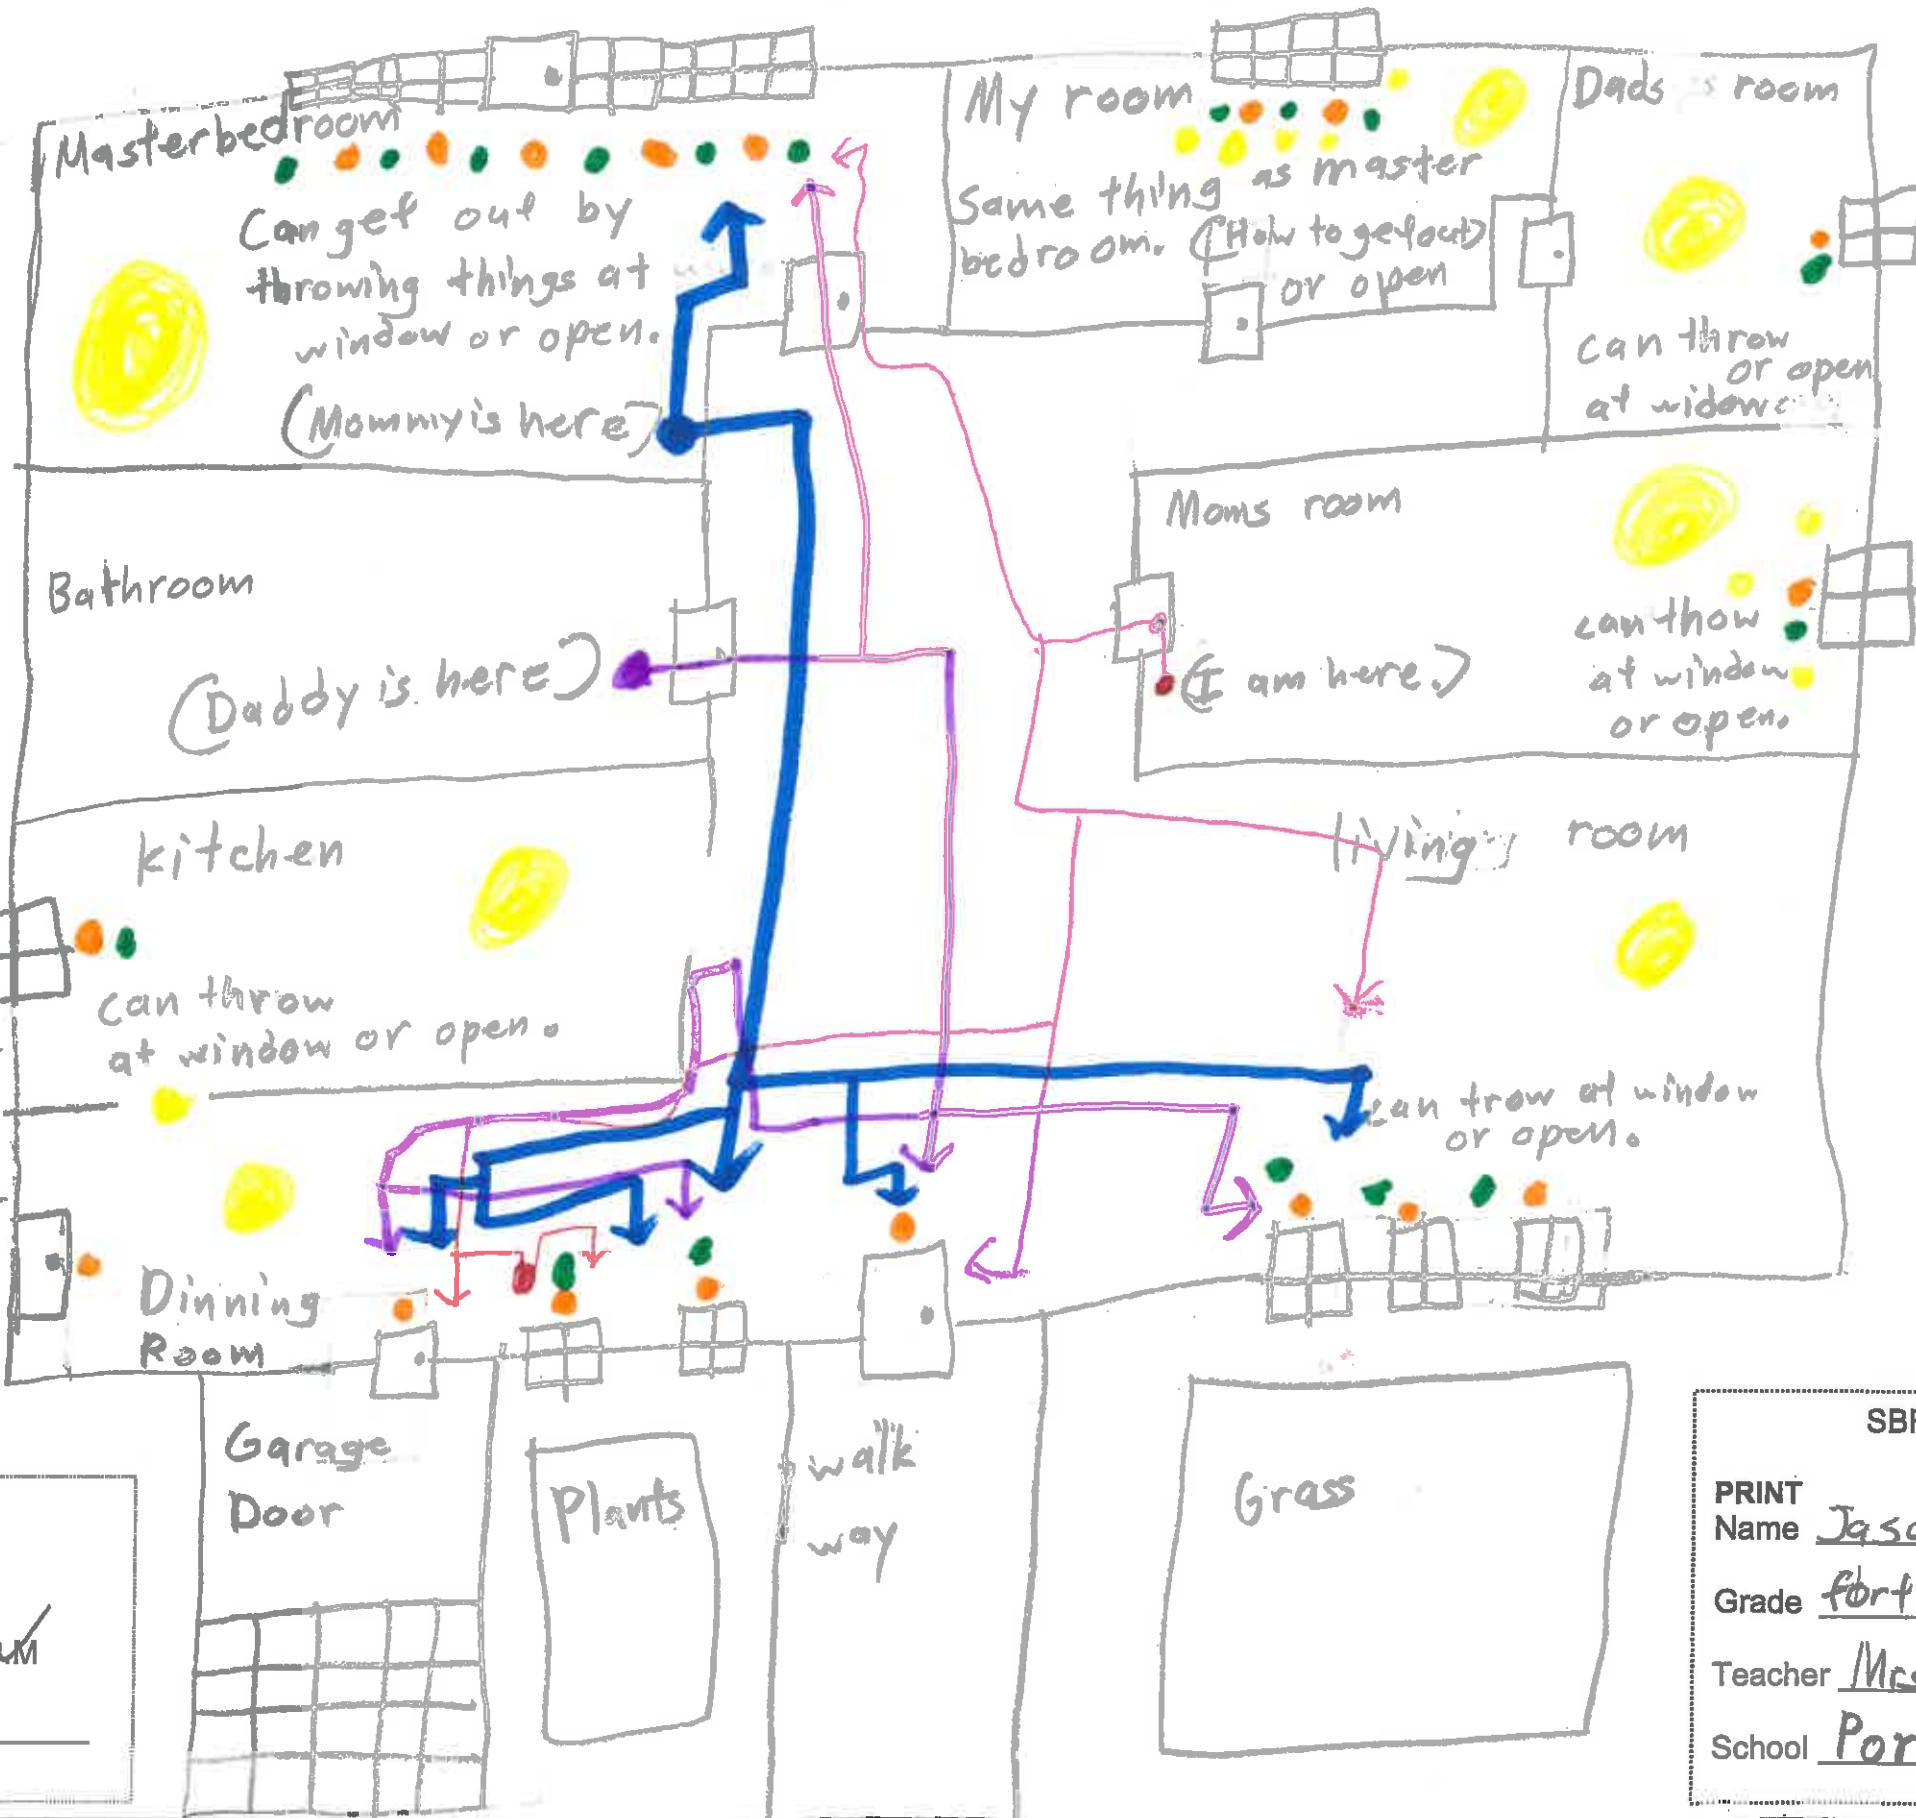 Masterbedroom
Can get out by
throwing things at
window or open.
(Mommy is here)
My room
Same thing as master
bedroom. (How to get out)
or open
Dads room
can throw
or open
at widow
Bathroom
(Daddy is here)
Moms room
(I am here.)
can thow
at window
or open.
kitchen
can throw
at window or open.
living room
can trow at window
or open.
Dinning
Room
Garage
Door
Plants
walk
way
Grass
PRINT
Name
Grade
Teacher
School